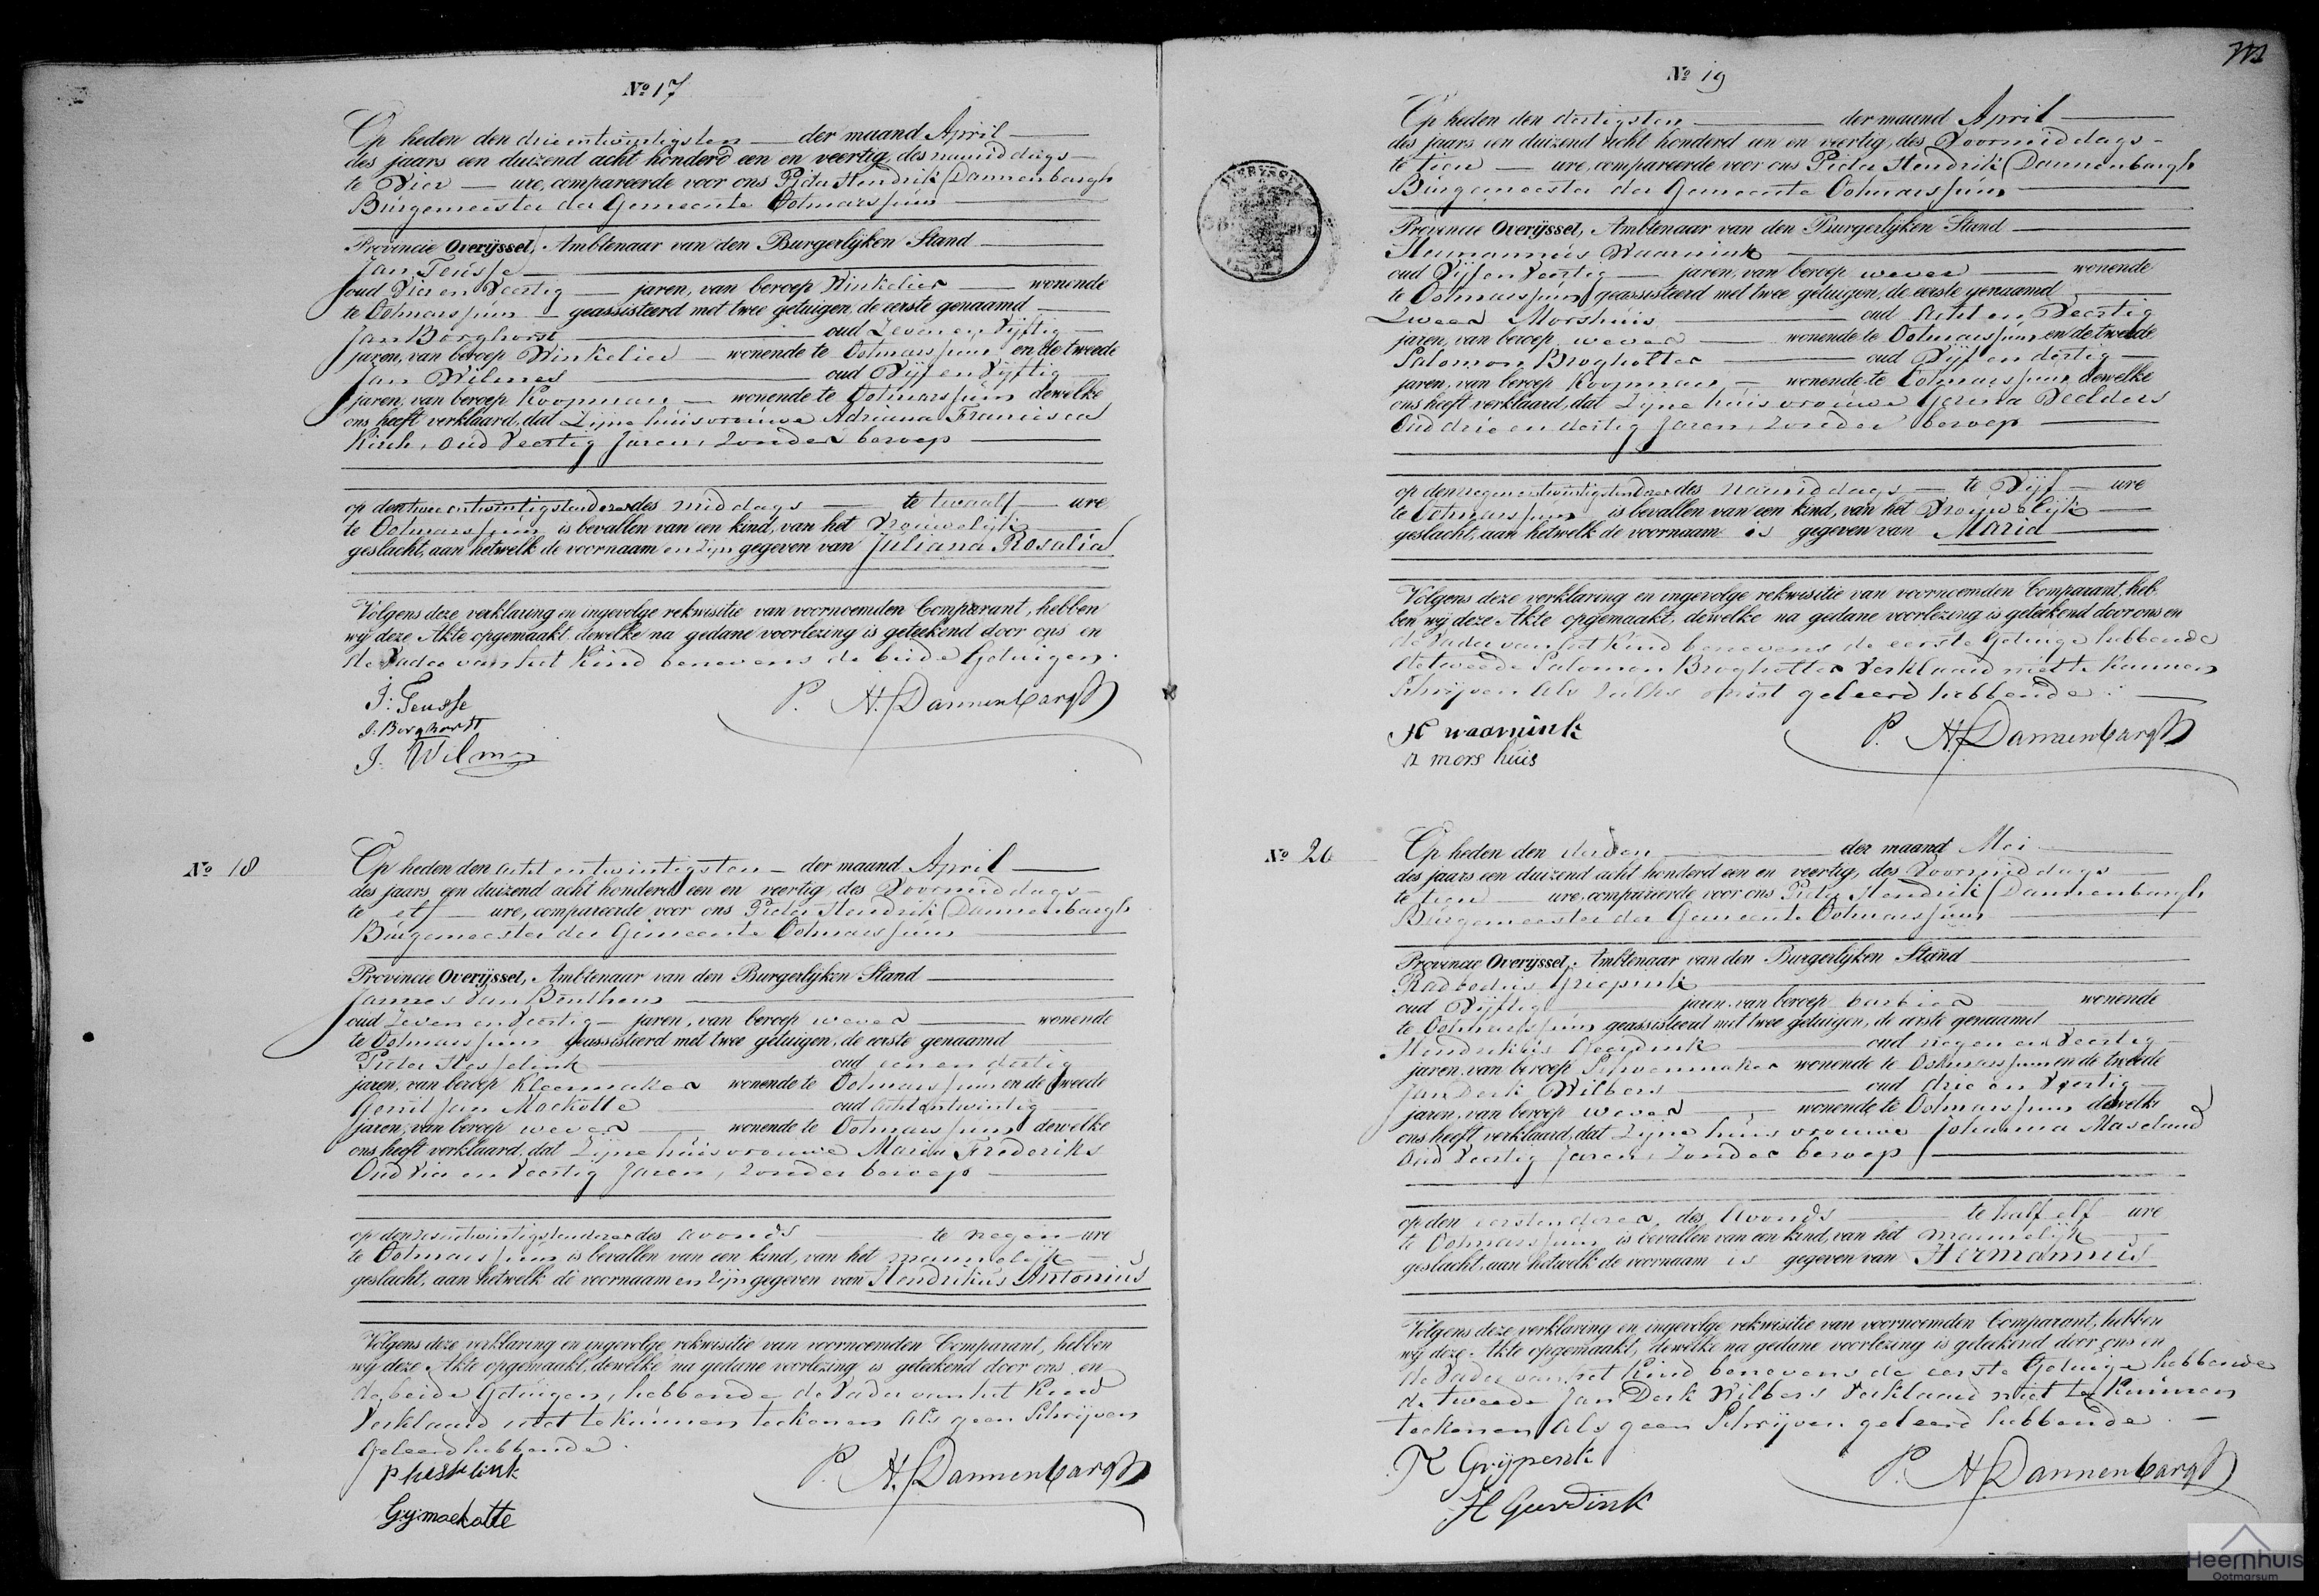 No 17
Op heden den drie entwintigsten der maand April
des jaars een duizend acht honderd een en veertig, des namiddags
te Vier ure, compareerde voor ons Pieter Hendrik Dannenbargh
Burgemeester der Gemeente Ootmarssum
Provincie Overijssel, Ambtenaar van den Burgerlijken Stand
Jan Teusse
oud Vier en Veertig jaren, van beroep Winkelier wonende
te Ootmarssum geassisteerd met twee getuigen, de eerste genaamd
Jan Borghorst oud Zeven en Vijftig
jaren, van beroep Winkelier wonende te Ootmarssum en de tweede
Jan Wilmes oud Vijf en Vijftig
jaren, van beroep Koopman wonende te Ootmarssum dewelke
ons heeft verklaard, dat Zijne huisvrouwe Adriana Francisca
Kirch, oud Veertig Jaren, zonder beroep
op den twee entwintigstendezer des middags te twaalf ure
te Ootmarssum is bevallen van een kind, van het Vrouwelijk
geslacht, aan hetwelk de voornaam en zijn gegeven van Juliana Rosalia
Volgens deze verklaring en ingevolge rekwisitie van voornoemden Comparant, hebben
wij deze Akte opgemaakt dewelke na gedane voorlezing is geteekend door ons en
de Vader van het Kind benevens de beide Getuigen.
J: Teusse
P. H. Dannenbargh
J. Borghorst
J. Wilmes
No 18
Op heden den acht entwintigsten der maand April
des jaars een duizend acht honderd een en veertig, des Voormiddags
te elf ure, compareerde voor ons Pieter Hendrik Dannenbargh
Burgemeester der Gemeente Ootmarssum
Provincie Overijssel, Ambtenaar van den Burgerlijken Stand
Jannes Van Benthem
oud Zeven en Veertig jaren, van beroep wever wonende
te Ootmarssum geassisteerd met twee getuigen, de eerste genaamd
Pieter Hesselink oud een en dertig
jaren, van beroep Kleermaker wonende te Ootmarssum en de tweede
Gerrit Jan Mackotte oud acht entwintig
jaren, van beroep wever wonende te Ootmarssum dewelke
ons heeft verklaard, dat Zijne huisvrouwe Maria Frederiks
Oud Vier en Veertig Jaren, zonder beroep
op den zes entwintigstendezer des avonds te negen ure
te Ootmarssum is bevallen van een kind, van het mannelijk
geslacht, aan hetwelk de voornaam en zijn gegeven van Hendrikus Antonius
Volgens deze verklaring en ingevolge rekwisitie van voornoemden Comparant, hebben
wij deze Akte opgemaakt, dewelke na gedane voorlezing is geteekend door ons en
de beide Getuigen, hebbende de Vader van het Kind
Verklaard niet te kunnen teekenen als geen Schrijven
Geleerd hebbende.
P hesselink
P. H. Dannenbargh
GJ mackotte
No 19
Op heden den dertigsten der maand April
des jaars een duizend acht honderd een en veertig, des Voormiddags
te tien ure, compareerde voor ons Pieter Hendrik Dannenbargh
Burgemeester der Gemeente Ootmarssum
Provincie Overijssel, Ambtenaar van den Burgerlijken Stand
Hermannus Waarnink
oud Vijf en Veertig jaren, van beroep wever wonende
te Ootmarssum geassisteerd met twee getuigen, de eerste genaamd
Zweer Morshuis oud Acht en Veertig
jaren, van beroep wever wonende te Ootmarssum en de tweede
Salomon Brogholter oud Vijf en dertig
jaren, van beroep Koopman wonende te Ootmarssum dewelke
ons heeft verklaard, dat Zijne huisvrouwe Gesina Velders
Oud drie en dertig Jaren, zonder beroep
op den negen entwintigstendezer des namiddags te Vijf ure
te Ootmarssum is bevallen van een kind, van het Vrouwelijk
geslacht, aan hetwelk de voornaam is gegeven van Maria
Volgens deze verklaring en ingevolge rekwisitie van voornoemden Comparant, heb-
ben wij deze Akte opgemaakt, dewelke na gedane voorlezing is geteekend door ons en
de Vader van het Kind benevens de eerste Getuige hebbende
de tweede Salomon Brogholter Verklaard niet te kunnen
Schrijven als zulks nooit geleerd hebbende.
H waarnink
P. H. Dannenbargh
Z mors huis
No 20
Op heden den derden der maand Mei
des jaars een duizend acht honderd een en veertig, des Voormiddags
te tien ure, compareerde voor ons Pieter Hendrik Dannenbargh
Burgemeester der Gemeente Ootmarssum
Provincie Overijssel, Ambtenaar van den Burgerlijken Stand
Radbodus Griepink
oud Vijftig jaren, van beroep barbier wonende
te Ootmarssum geassisteerd met twee getuigen, de eerste genaamd
Hendrikus Geerdink oud negen en Veertig
jaren, van beroep Schoenmaker wonende te Ootmarssum en de tweede
Jan Derk Wilbers oud drie en Veertig
jaren, van beroep wever wonende te Ootmarssum dewelke
ons heeft verklaard, dat Zijne huisvrouwe Johanna Maseland
Oud Veertig Jaren, zonder beroep
op den eerstendezer des Avonds te half elf ure
te Ootmarssum is bevallen van een kind, van het mannelijk
geslacht, aan hetwelk de voornaam is gegeven van Hermannus
Volgens deze verklaring en ingevolge rekwisitie van voornoemden Comparant, hebben
wij deze Akte opgemaakt, dewelke na gedane voorlezing is geteekend door ons en
de Vader van het Kind benevens de eerste Getuige hebbende
de tweede Jan Derk Wilbers Verklaard niet te kunnen
teekenen als geen Schrijven geleerd hebbende.
R Grijpenk
P. H. Dannenbargh
H Geerdink
Heernhuis
Ootmarsum